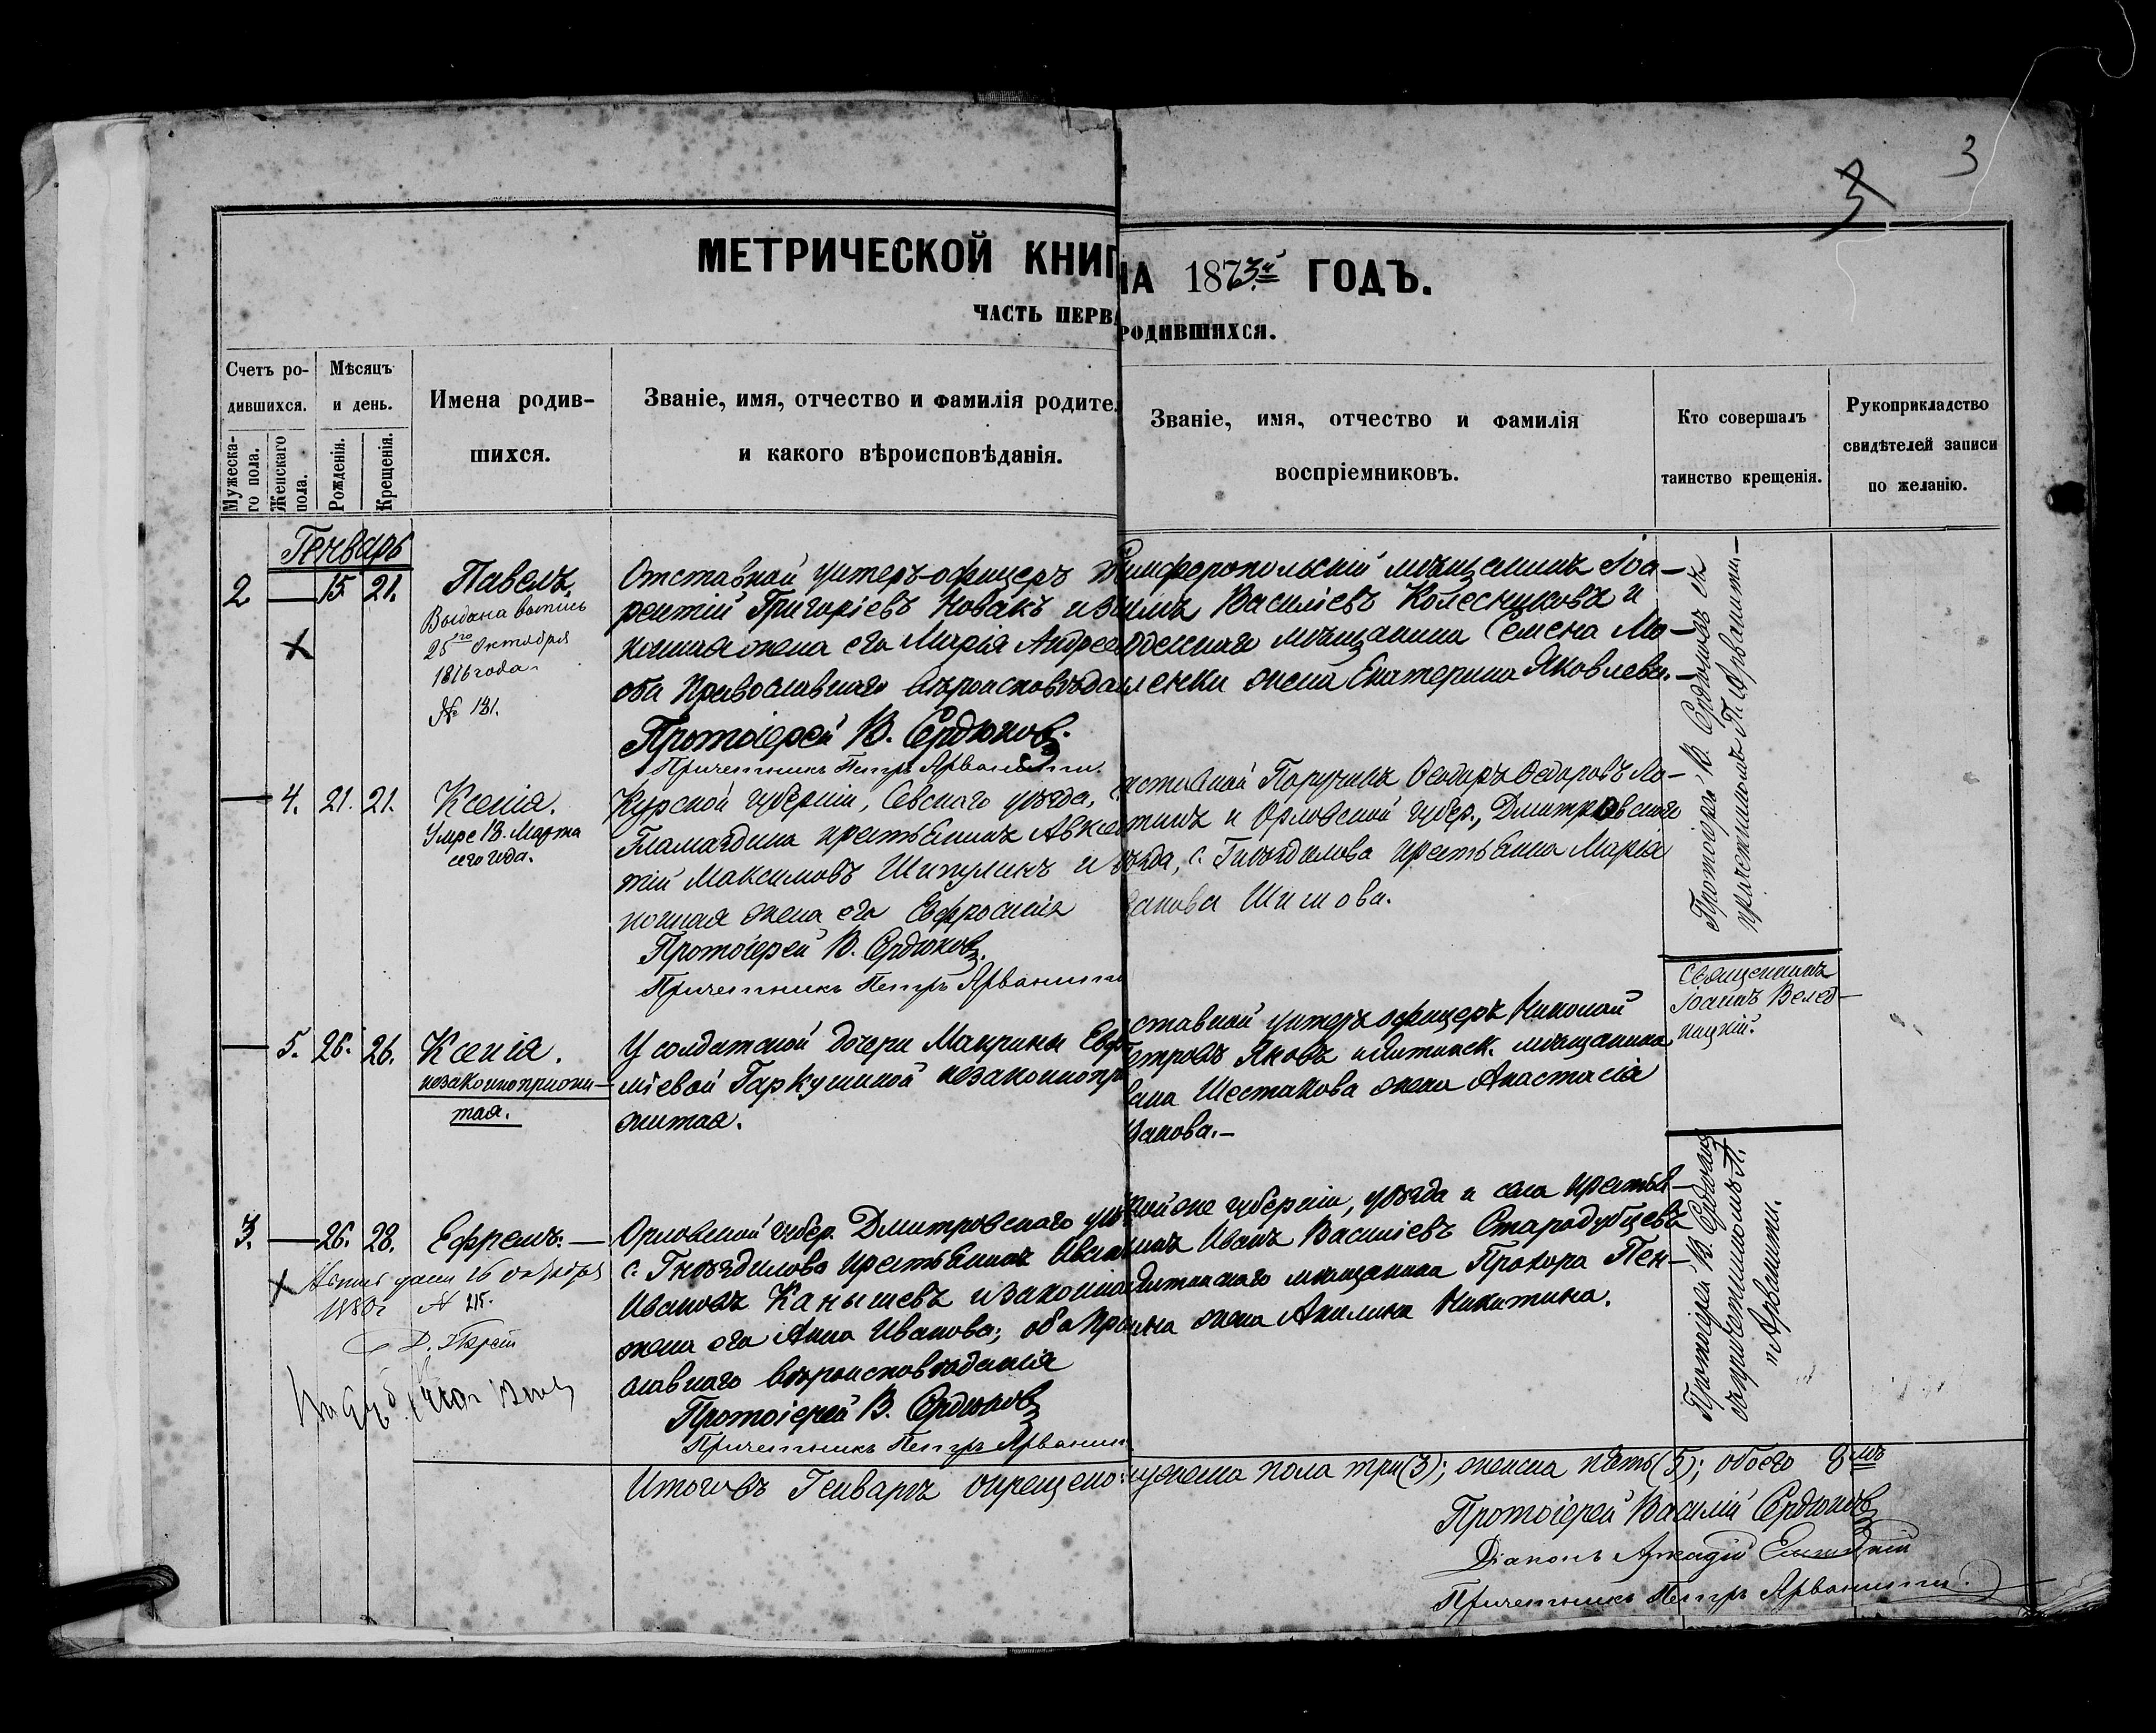 3
3
МЕТРИЧЕСКОЙ КНИГ
НА 1873й ГОДЪ.
ЧАСТЬ ПЕРВА
РОДИВШИХСЯ.
Счетъ ро-
дившихся.
Мужеска-
го пола.
Женскаго
пола.
Мѣсяцъ
и день.
Рожденія.
Крещенія.
Имена родив-
шихся.
Званіе, имя, отчество и фамилія родите
и какого вѣроисповѣданія.
Званіе, имя, отчество и фамилія
воспріемниковъ.
Кто совершалъ
таинство крещенія.
Рукоприкладство
свидѣтелей записи
по желанію.
Генварь
2 — 15. 21.
Павелъ.
Выдана выпись
25го Октября
1816 года
№ 131.
Отставной унтеръ-офицеръ
рентій Григоріевъ Новакъ и
конная жена его Марья Андрее
оба Православнаго вѣроисповѣда
Протоіерей В. Сердюковъ.
Причетникъ Петръ Арванити.
Симферопольскій мѣщанинъ Іоа-
Василіевъ Колесниковъ и
Одесская мѣщанина Семена Мо-
ленки жена Екатерина Яковлева.—
Протоіерей В. Сердюковъ съ
причетникомъ П. Арванити—
— 4. 21. 21.
Ксенія.
Умре 13. Марта
сего года.
Курской губерніи, Севскаго уѣзда,
Гламаздина крестьянинъ Авксе
тій Максимовъ Шипулинъ и
конная жена его Евфросинія
Протоіерей В. Сердюковъ.
Причетникъ Петръ Арванити
ставной Поручикъ Ѳеодоръ Ѳедоровъ Ло-
и Орловской губер., Дмитровскаго
ѣзда, с. Гнѣздилова крестьянка Марья
анова Шишова.
— 5. 26. 26.
Ксенія.
незаконноприжи-
тая.
У солдатской дочери Маврины Евд
міевой Гаркушиной незаконнопри
житая.
ставной унтеръ офицеръ Николай
етровъ Яковъ и мѣщанина
вана Шестакова жена Анастасія
ванова.—
Священникъ
Іоаннъ Велед-
ницкій.
3. — 26. 28.
Ефремъ.—
16 октября
№ 215.
Орловской губер. Дмитровскаго уѣ
с. Гнѣздилова крестьянинъ Иван
Ивановъ Канышевъ и законна
жена его Анна Иванова; оба Пра
славнаго вѣроисповѣданія
Протоіерей В. Сердюковъ
Причетникъ Петръ Арванит
кой же губерніи, уѣзда и села крестья-
нинъ Иванъ Василіевъ Стародубцевъ
мѣщанина Прохора Пен-
кина жена Акилина Никитина.
Протоіерей В. Сердюковъ
съ причетникомъ П.
Арванити.
Итого въ Генварѣ окрещено:
мужеска пола три(3); женска пять(5); обоего 8мь
Протоіерей Василій Сердюковъ
Діаконъ Аркадій
Причетникъ Петръ Арванити.